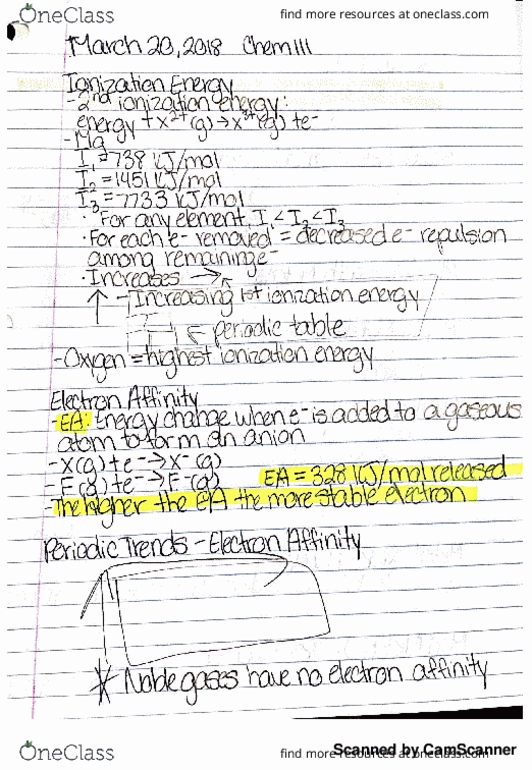 OneClass
find more resources at oneclass.com
March 20, 2018 Chem 111
Ionization Energy
-2nd ionization energy:
energy + x²⁺(g) → x²⁺(g) + e⁻
-Mg
I₁ = 738 KJ/mol
I₂ = 1451 KJ/mol
I₃ = 7733 KJ/mol
· For any element, I₁ < I₂ < I₃
· For each e⁻ removed = decreased e⁻ repulsion
among remaining e⁻
· Increases →
↑ - Increasing 1st ionization energy
← periodic table
-Oxygen = highest ionization energy
Electron Affinity
-EA: Energy change when e⁻ is added to a gaseous
atom to form an anion
-X(g) + e⁻ → X⁻(g)
-F(g) + e⁻ → F⁻(g) EA = 328 KJ/mol released
-The higher the EA the more stable electron
Periodic Trends - Electron Affinity
* Noble gases have no electron affinity
OneClass
find more resources at oneclass.com
Scanned by CamScanner